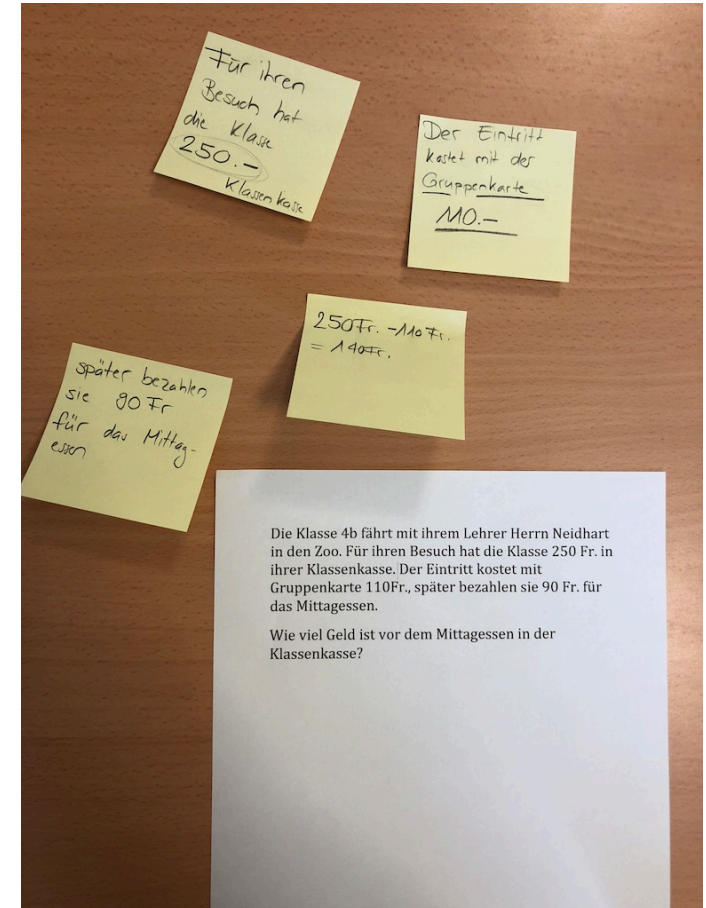 Für ihren
Besuch hat
die Klasse
250.–
Klassenkasse
Der Eintritt
kostet mit der
Gruppenkarte
110.–
250Fr. -110 Fr.
= 140Fr.
später bezahlen
sie 90 Fr
für das Mittag-
essen
Die Klasse 4b fährt mit ihrem Lehrer Herrn Neidhart
in den Zoo. Für ihren Besuch hat die Klasse 250 Fr. in
ihrer Klassenkasse. Der Eintritt kostet mit
Gruppenkarte 110Fr., später bezahlen sie 90 Fr. für
das Mittagessen.
Wie viel Geld ist vor dem Mittagessen in der
Klassenkasse?